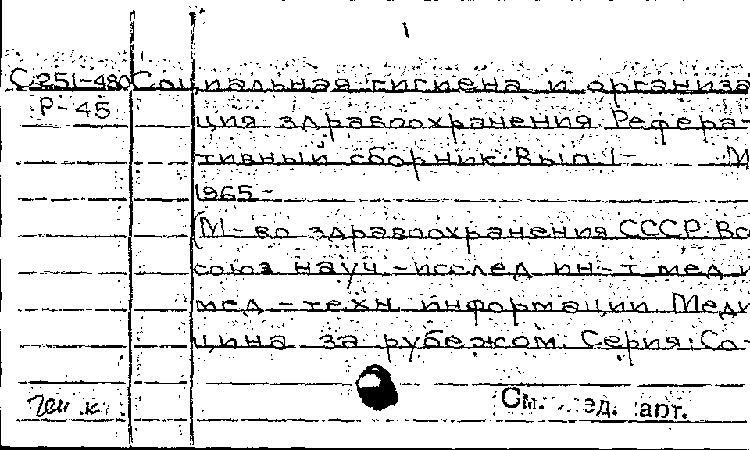 С251-480 Социальная гигиена и организа
Р-45 ция здравоохранения. Рефера-
тивный сборник. Вып. 1- М
1965-
(М-во здравоохранения СССР. Вс
союз. науч.-исслед. ин-т мед. и
мед.-техн. информации. Меди
цина за рубежом. Серия: Со-
См. ед. арт.